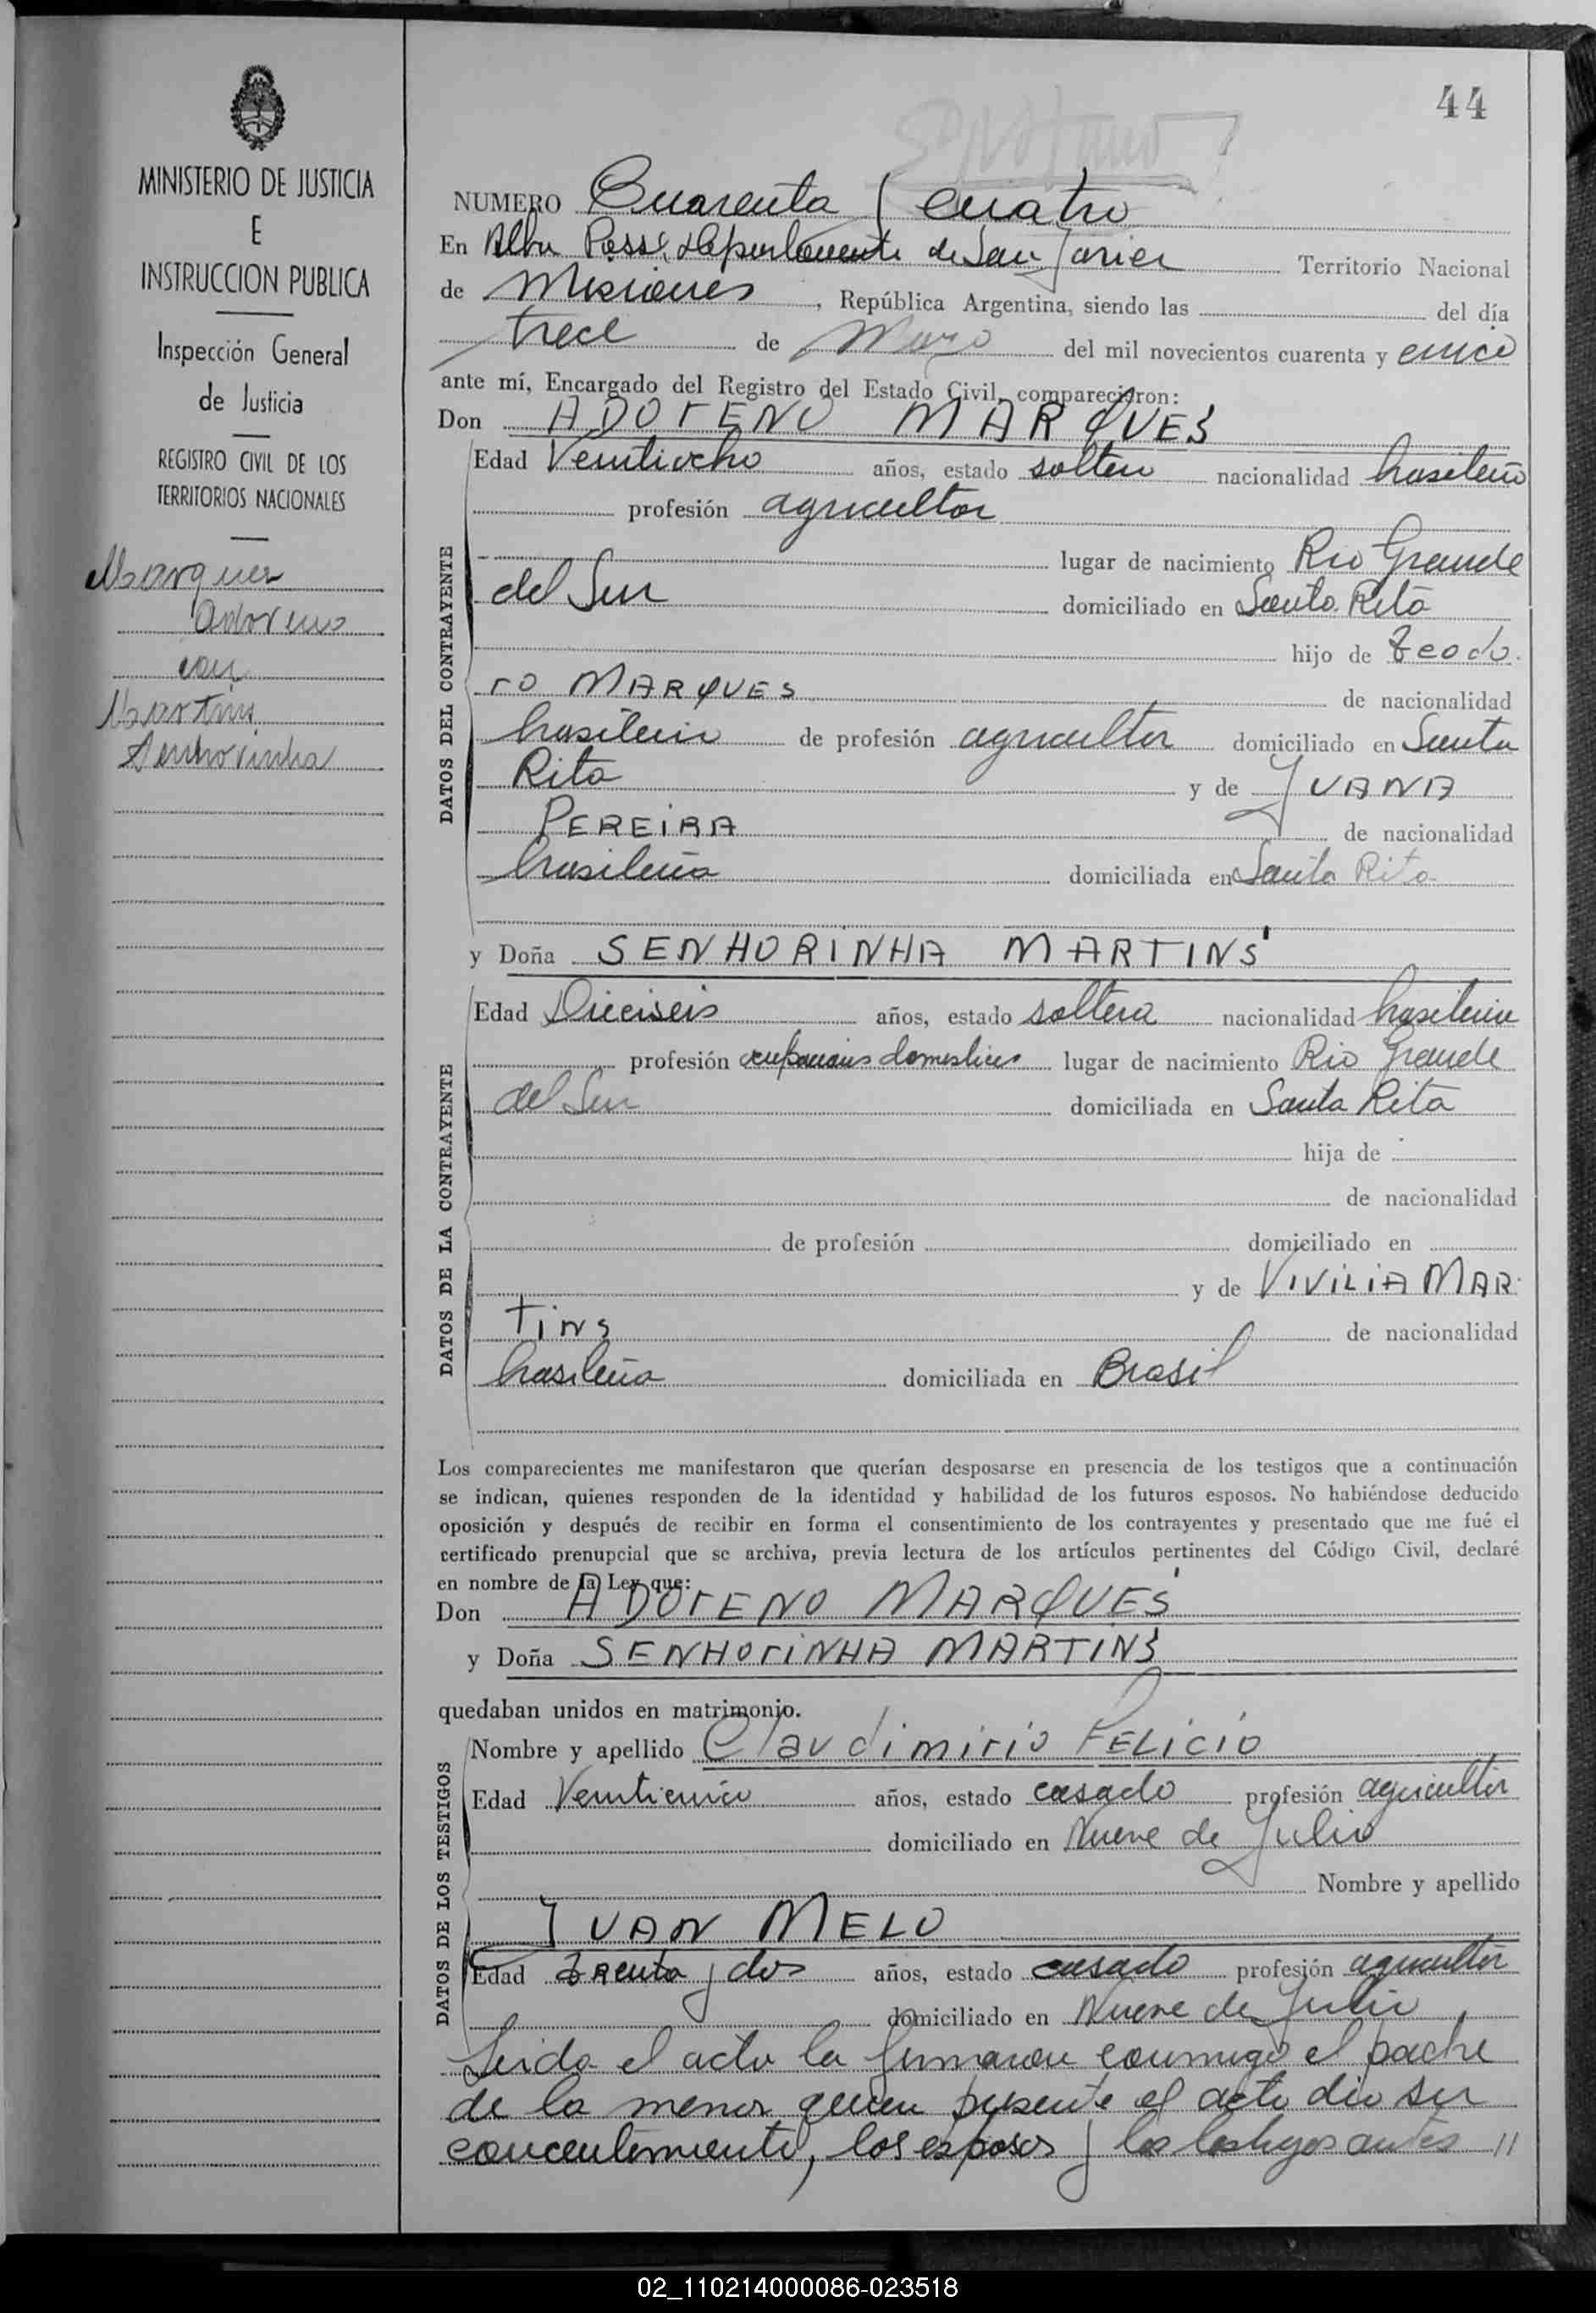 44
MINISTERIO DE JUSTICIA
E
INSTRUCCION PUBLICA
Inspección General
de Justicia
REGISTRO CIVIL DE LOS
TERRITORIOS NACIONALES
Marques
Adoreno
con
Martins
Senhorinha
NUMERO Cuarenta y cuatro
En Alba Posse, departamento de San Javier Territorio Nacional
de Misiones, República Argentina, siendo las del día
trece de del mil novecientos cuarenta y cinco
ante mí, Encargado del Registro del Estado Civil, comparecieron:
Don ADOrENO MARQUES
DATOS DEL CONTRAYENTE
Edad Veintiocho años, estado soltero nacionalidad brasileño
profesión agricultor
lugar de nacimiento Rio Grande
del Sur domiciliado en Santa Rita
hijo de Teodo
ro MARQUES de nacionalidad
brasilero de profesión agricultor domiciliado en Santa
Rita y de JUANA
PEREIRA de nacionalidad
brasileña domiciliada en Santa Rita
y Doña SENHORINHA MARTINS
DATOS DE LA CONTRAYENTE
Edad Dieciseis años, estado soltera nacionalidad brasilera
profesión ocupaciones domesticas lugar de nacimiento Rio Grande
del Sur domiciliada en Santa Rita
hija de
de nacionalidad
de profesión domiciliado en
y de VIVILIA MAR
TiNS de nacionalidad
brasileña domiciliada en Brasil
Los comparecientes me manifestaron que querían desposarse en presencia de los testigos que a continuación
se indican, quienes responden de la identidad y habilidad de los futuros esposos. No habiéndose deducido
oposición y después de recibir en forma el consentimiento de los contrayentes y presentado que me fué el
certificado prenupcial que se archiva, previa lectura de los artículos pertinentes del Código Civil, declaré
en nombre de la Ley que:
Don ADOrENO MARQUES
y Doña SENHOriNHA MARTINS
quedaban unidos en matrimonio.
DATOS DE LOS TESTIGOS
Nombre y apellido Claudimirio FELICIO
Edad Veinticinco años, estado casado profesión agricultor
domiciliado en Nueve de Julio
Nombre y apellido
JUAN MELO
Edad Treinta y dos años, estado casado profesión agricultor
domiciliado en Nueve de Julio
Leida el acta la firmaron conmigo el padre
de la menor quien presente al acto dio su
concentimiento, los esposos y los testigos antes //
02_110214000086-023518